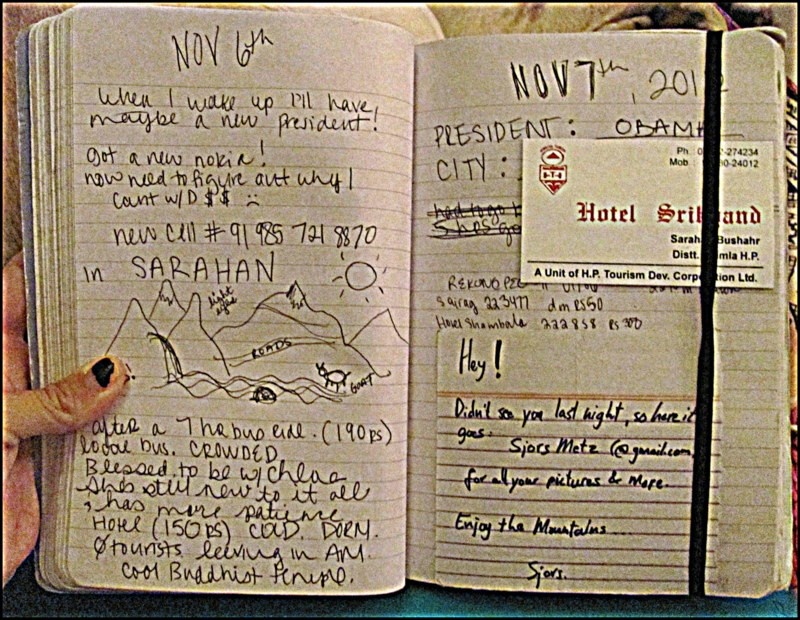 NOV 6th
When I wake up I'll have
maybe a new president!
Got a new nokia!
now need to figure out why I
cant w/D $$
new cell # 91 985 721 8870
in SARAHAN
light
ROADS
GOAT
after a 7 hr bus ride. (190 ps)
local bus. CROWDED.
Blessed to be w/ Chloe
She's still new to it all
& has more patience
Hotel (150 ps) COLD. DORM.
Ø tourists leaving in AM.
Cool Buddhist temple.
NOV 7th, 201
PRESIDENT: OBAMA
CITY:
had to go
Ph : 274234
Mob : 24012
H.P.T.D.C
Hotel Srikhand
Sarahan Bushahr
Distt. Shimla H.P.
A Unit of H.P. Tourism Dev. Corporation Ltd.
REKONG PEO
Sairag 223477 dm RS50
Hotel Shambala 222858 RS 300
Hey!
Didn't see you last night, so here it
goes.
Sjors Metz @gmail.com
for all your pictures & more.
Enjoy the Mountains
Sjors.